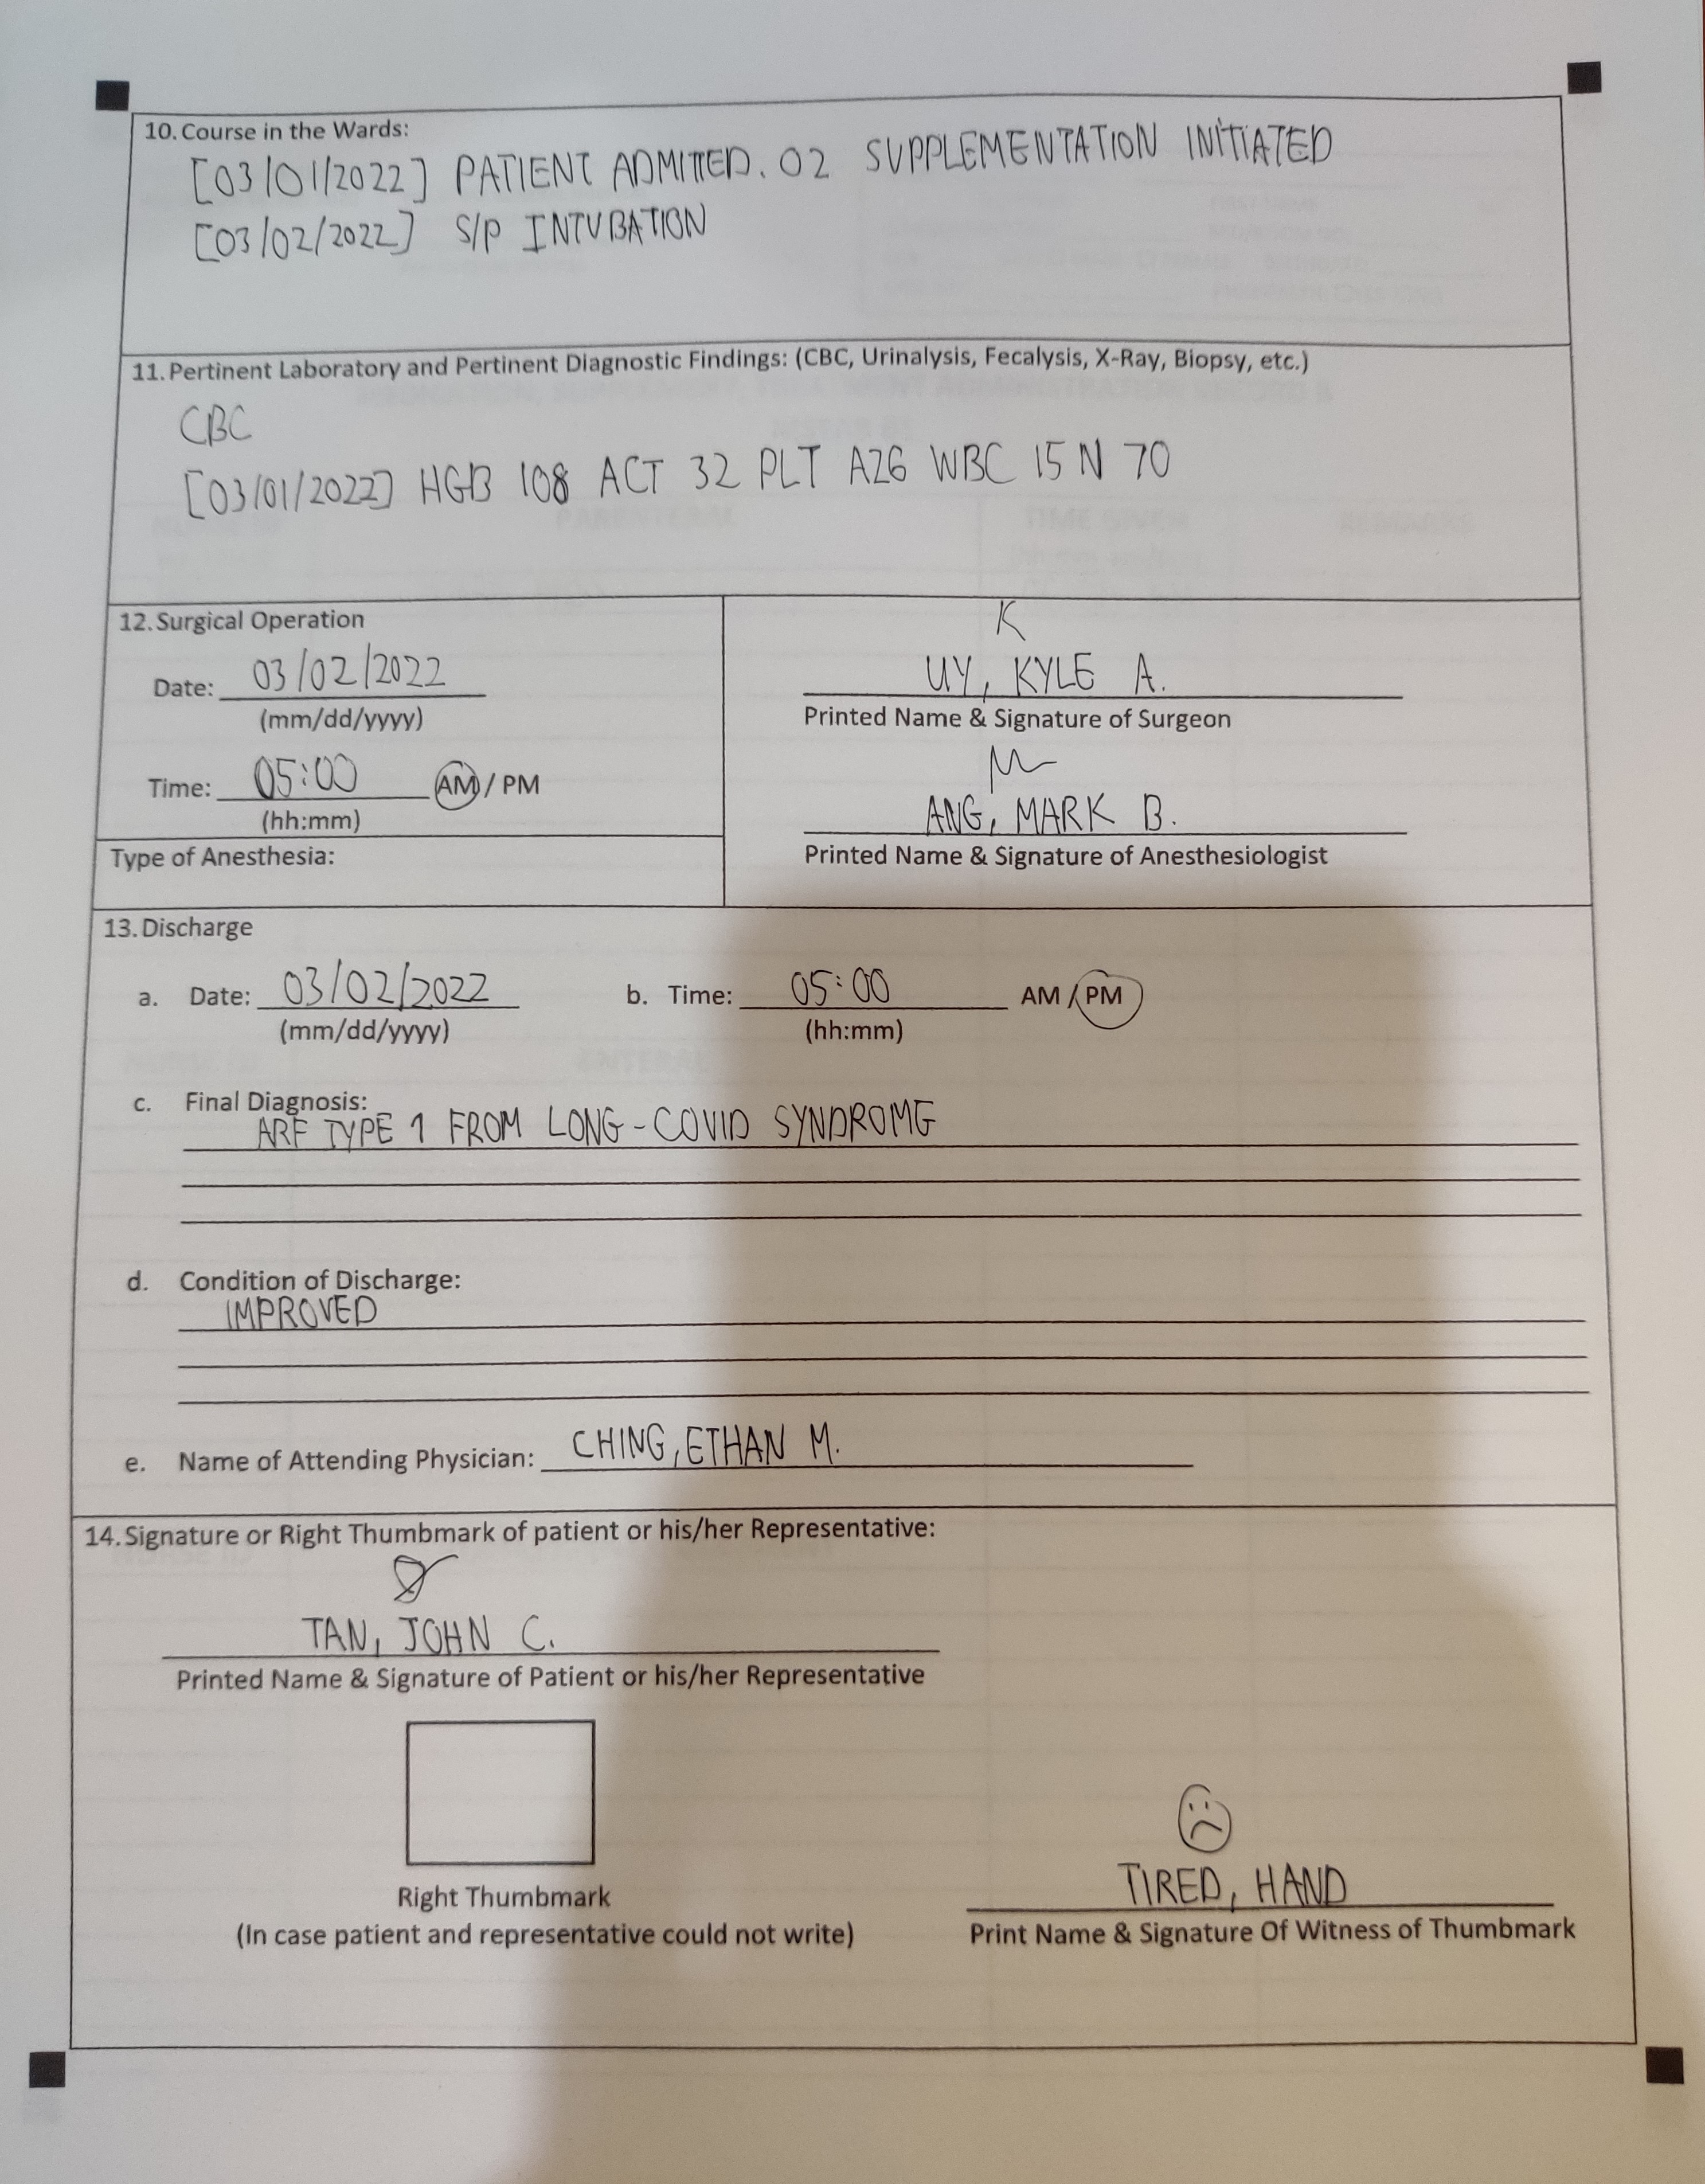 10. Course in the Wards:
[03/01/2022] PATIENT ADMITTED. O2 SUPPLEMENTATION INITIATED
[03/02/2022] S/P INTUBATION
11. Pertinent Laboratory and Pertinent Diagnostic Findings: (CBC, Urinalysis, Fecalysis, X-Ray, Biopsy, etc.)
CBC
[03/01/2022] HGB 108 ACT 32 PLT A26 WBC 15 N 70
12. Surgical Operation
Date: 03/02/2022
(mm/dd/yyyy)
Time: 05:00 AM / PM
(hh:mm)
Type of Anesthesia:
K
UY, KYLE A.
Printed Name & Signature of Surgeon
ANG, MARK B.
Printed Name & Signature of Anesthesiologist
13. Discharge
a. Date: 03/02/2022 b. Time: 05:00 AM / PM
(mm/dd/yyyy) (hh:mm)
c. Final Diagnosis:
ARF TYPE 1 FROM LONG-COVID SYNDROME
d. Condition of Discharge:
IMPROVED
e. Name of Attending Physician: CHING, ETHAN M.
14. Signature or Right Thumbmark of patient or his/her Representative:
TAN, JOHN C.
Printed Name & Signature of Patient or his/her Representative
Right Thumbmark
(In case patient and representative could not write)
TIRED, HAND
Print Name & Signature Of Witness of Thumbmark